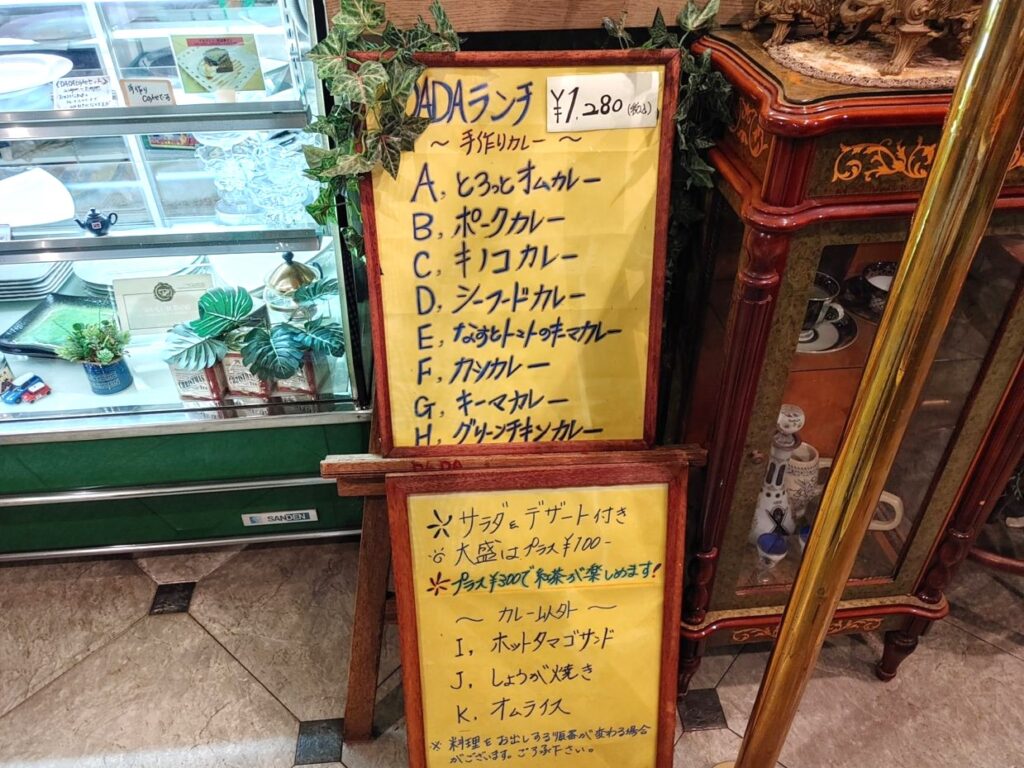 DADAランチ ¥1,280(税込)
～ 手作りカレー ～
A, とろっとオムカレー
B, ポークカレー
C, キノコカレー
D, シーフードカレー
E, なすとトマトのキーマカレー
F, カツカレー
G, キーマカレー
H, グリーンチキンカレー
※ サラダ&デザート付き
※ 大盛はプラス¥100-
※ プラス¥300で紅茶が楽しめます!
～ カレー以外 ～
I, ホットタマゴサンド
J, しょうが焼き
K. オムライス
※ 料理をお出しする順番が変わる場合
がございます。ご了承下さい。
SANDEN